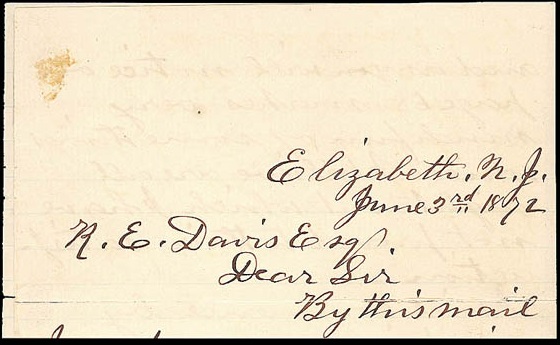 Elizabeth. N. J.
June 3rd 1872
R. E. Davis Esq.
Dear Sir
By this mail